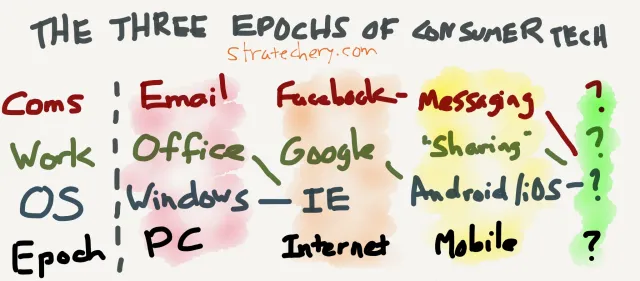 THE THREE EPOCHS OF CONSUMER TECH
stratechery.com
Coms Email Facebook Messaging ?
Work Office Google "Sharing" ?
OS Windows IE Android/iOS ?
Epoch PC Internet Mobile ?